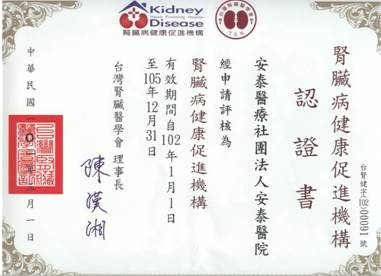 Kidney
Disease
Health Promoting Hospital
腎臟病健康促進機構
腎臟病健康促進機構
認證書
台腎健字102腎健000091號
安泰醫療社團法人安泰醫院
經申請評核為
腎臟病健康促進機構
有效期間自102年1月1日
至105年12月31日
台灣腎臟醫學會 理事長
陳漢湘
中華民國
月一日